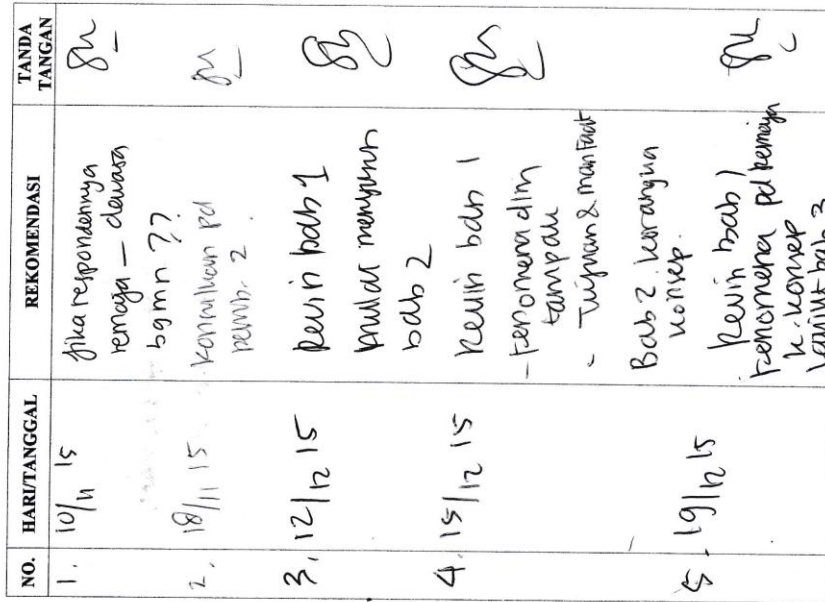 NO. HARI/TANGGAL REKOMENDASI TANDA TANGAN
1. 10/11 15 Jika respondennya
remaja - dewasa
bgmn ??
2. 18/11 15 Konsulkan pd
pemb. 2.
3. 12/12 15 Revisi bab 1
mulai menyusun
bab 2
4. 15/12 15 Revisi bab 1
- Fenomena dlm
tampak
- Tujuan & manfaat
Bab 2. kurangnya
konsep.
5. 19/12 15 Revisi bab 1
Fenomena pd remaja
K. konsep
lanjut bab 3